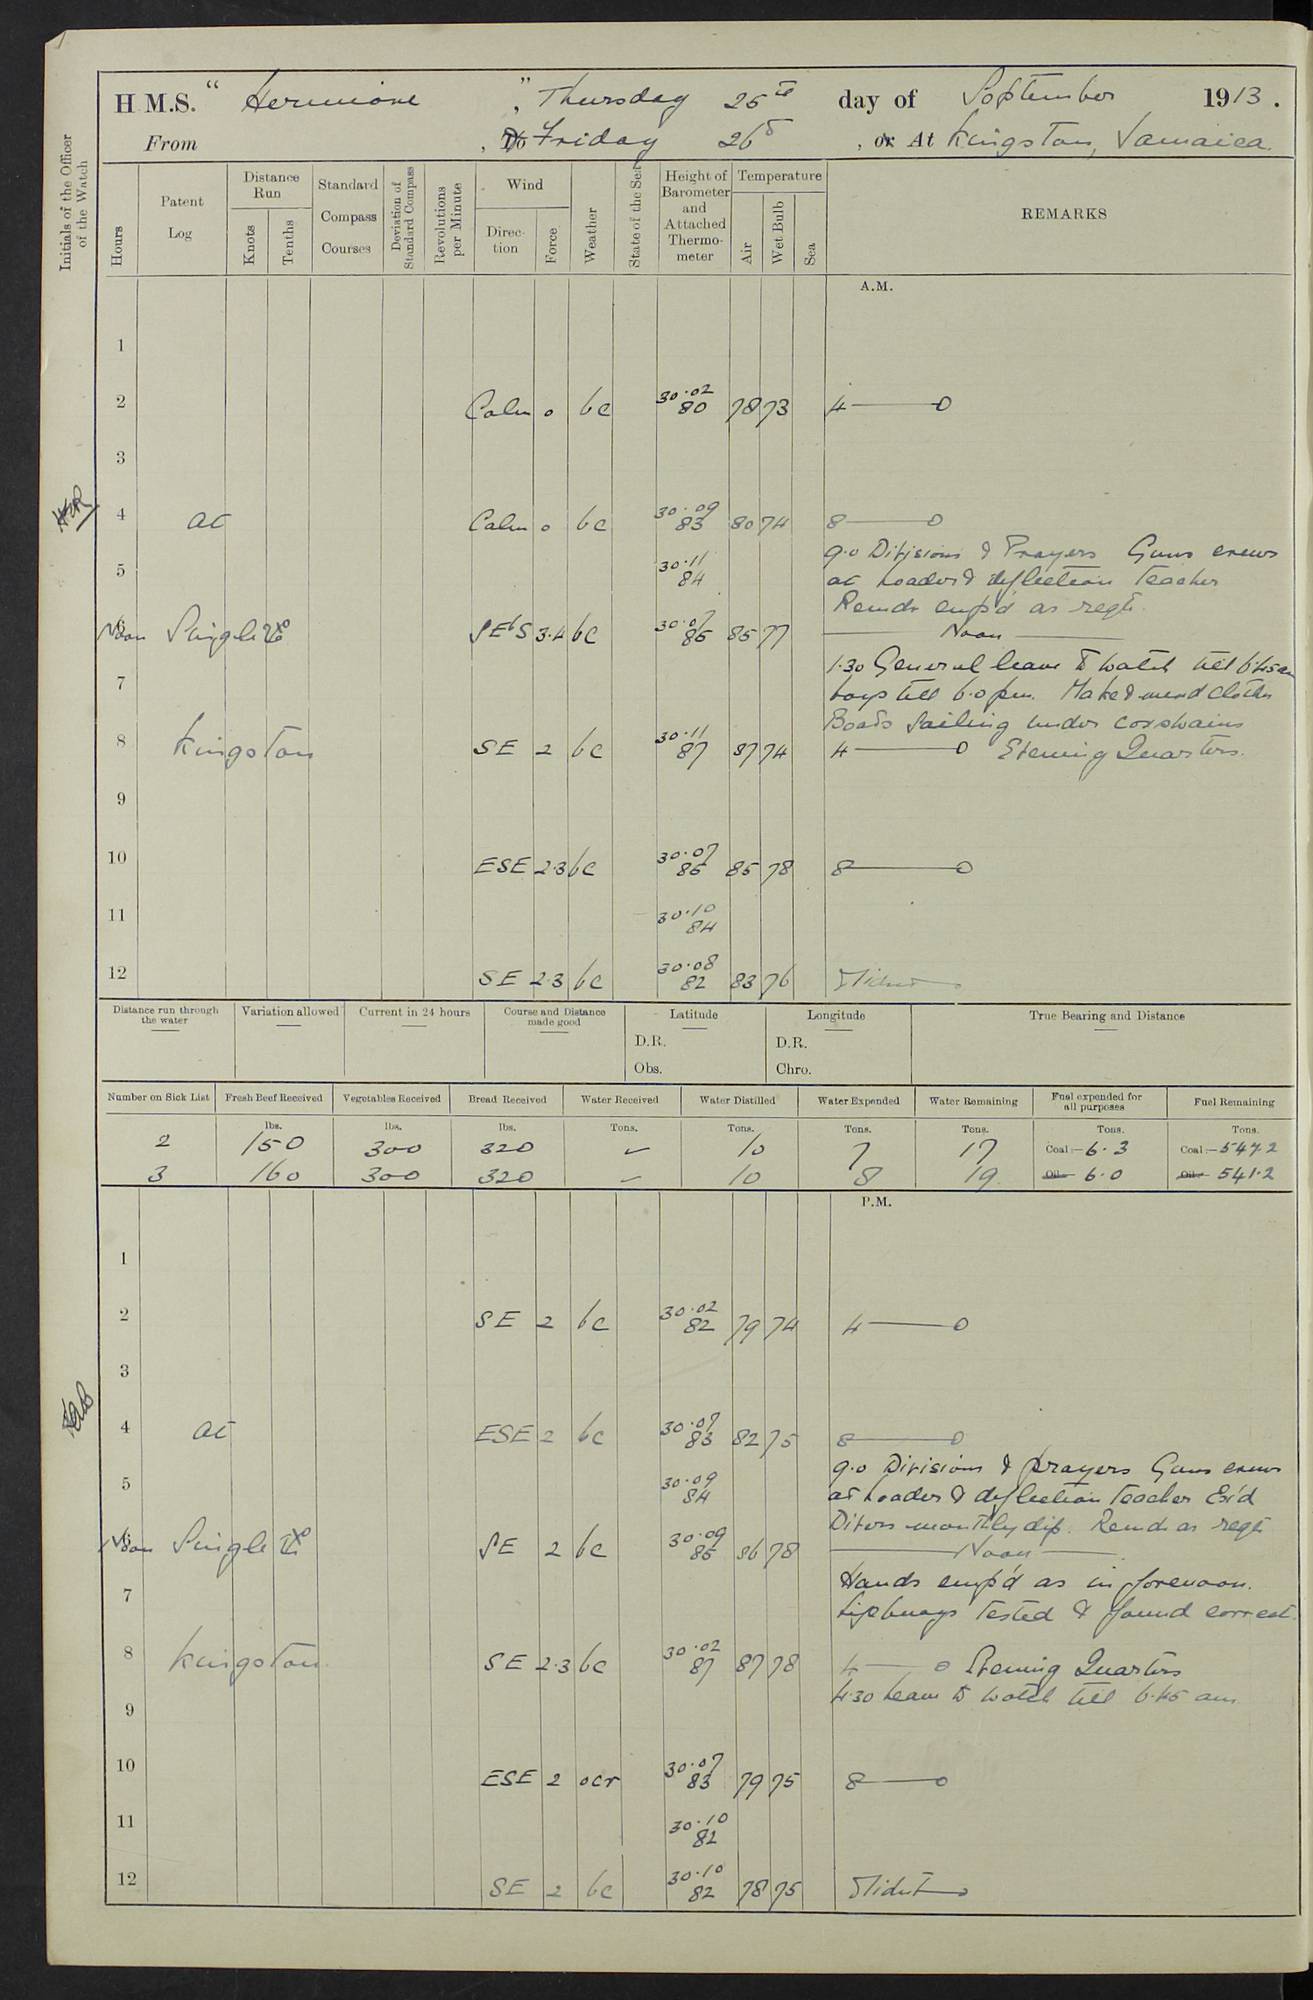 H.M.S. "Hermione", Thursday 25th day of September 1913.
From , To Friday 26th , or At Kingston, Jamaica.
Initials of the Officer of the Watch
Hours
Patent Log
Distance Run
Knots
Tenths
Standard Compass Courses
Deviation of Standard Compass
Revolutions per Minute
Wind
Direction
Force
Weather
State of the Sea
Height of Barometer and Attached Thermometer
Temperature
Air
Wet Bulb
Sea
REMARKS
A.M.
1
2 Calm 0 bc 30.02 80 78 73 4 — 0
3
4 at Calm 0 bc 30.09 83 80 74 8 — 0
9.0 Divisions & Prayers Guns crews
5 30.11 84 at Loader & deflection Teacher
Remdr emp'd as reqte.
Noon Single SEbS 3.4 bc 30.07 86 85 77 Noon
1.30 General leave to watch till 6.45 am
7 boys till 6.0 pm. Make & mend clothes
Boats Sailing under coxswains
8 Kingston SE 2 bc 30.11 87 87 74 4 — 0 Evening Quarters.
9
10 ESE 2.3 bc 30.07 86 85 78 8 — 0
11 30.10 84
12 SE 2.3 bc 30.08 82 83 76 Midnt
Distance run through the water
Variation allowed
Current in 24 hours
Course and Distance made good
Latitude
D.R.
Obs.
Longitude
D.R.
Chro.
True Bearing and Distance
Number on Sick List Fresh Beef Received Vegetables Received Bread Received Water Received Water Distilled Water Expended Water Remaining Fuel expended for all purposes Fuel Remaining
lbs. lbs. lbs. Tons. Tons. Tons. Tons. Tons. Tons.
2 150 300 320 – 10 7 17 Coal:– 6.3 Coal:– 547.2
3 160 300 320 – 10 8 19 Oil:– 6.0 Oil:– 541.2
P.M.
1
2 SE 2 bc 30.02 82 79 74 4 — 0
3
4 at ESE 2 bc 30.07 83 82 75 8 — 0
9.0 Divisions & prayers Guns crews
5 30.09 84 at Loader & deflection Teacher Ex'd
Divers monthly dip. Remdr as reqte
Noon Single SE 2 bc 30.09 85 86 78 Noon
Hands emp'd as in forenoon.
7 Lifebuoys tested & found correct.
8 Kingston SE 2.3 bc 30.02 87 87 78 4 — 0 Evening Quarters
4.30 Leave to watch till 6.45 am
9
10 ESE 2 ocr 30.07 83 79 75 8 — 0
11 30.10 82
12 SE 2 bc 30.10 82 78 75 Midnt